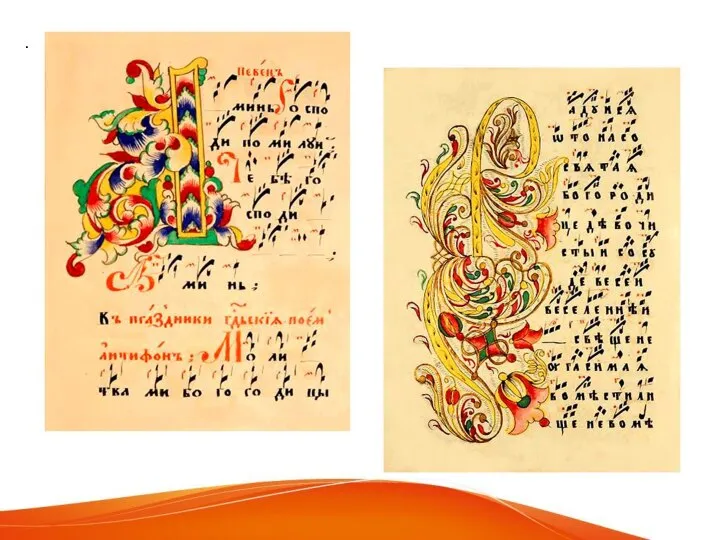 .
пѣвецъ
А минь Го спо
ди по ми луи ;
Т е бѣ Го
спо ди
А ми нь ;
Къ пра́здники гд҇ьскїѧ пое́м
а҆нтифо́нъ ; Мо ли
тва ми бо го ро ди цы
Р а д у и с ѧ
ѿ т о н а с о
с в ѧ т а ѧ
б о г о р о д и
ц е д ѣ в о ч и
с т ы и с о с у
д е в с е и
в с е л е н н ѣ и
с в ѣ щ е н е
у г а с и м а ѧ
в о м ѣ с т и л и
щ е н е в о м ѣ